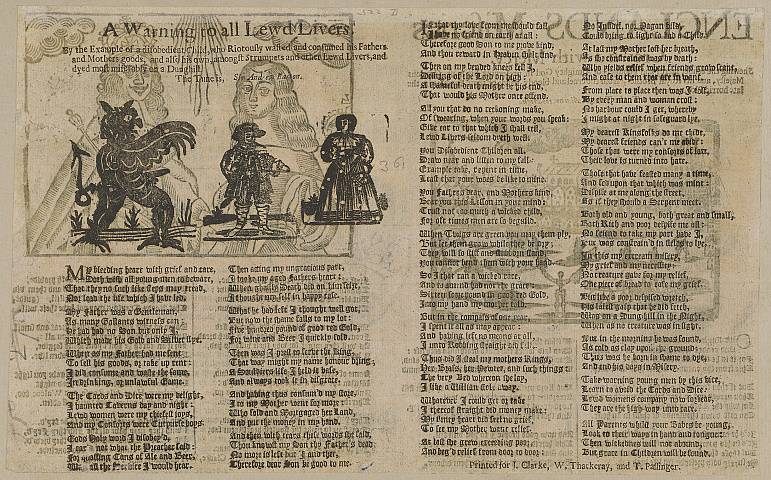 A Warning to all Lewd Livers
By the Example of a disobedient Child, who Riotously wasted and consumed his Fathers
and Mothers goods, and also his own, amongst Strumpets and other Lewd Livers, and
dyed most miserably on a Dunghill.
The Tune is, Sir Andrew Barton.
My bleeding heart with grief and care,
Doth wish all young men to beware,
That they no such like steps may tread,
Nor lead the life which I have led.
My Father was a Gentleman,
As many Gallants witness can,
He had no Son but only I,
Which made his Gold and Silver flye.
When as my Father had me sent
To sell his goods, or take up rent:
I did consume and waste the same,
In drinking, or unlawful Game.
The Cards and Dice were my delight,
I haunted Taverns day and night:
Lewd women were my chiefest joys,
And my Consorts were Cutpurse boys.
Gods Holy word I disobey'd,
I car'd not what the Preacher said:
For quaffing Cans of Ale and Beer,
Was all the Service I would hear.
Then acting my ungracious part,
I broke my aged Fathers heart:
When ghastly Death did on him seize,
I thought my self in happy case.
What he had left I thought well got,
But now the same falls to my lot:
Five hundred pound of good red Gold,
For wine and Beer I quickly sold.
Then was I prest to serve the King,
That way might my name honour bring:
A Souldiers life I held it base,
And always took it in disgrace.
And having thus consum'd my store,
I to my Mother went for more
Who sold and Morgaged her Land,
And put the money in my hand.
And then with tears these words she said,
Thou know'st my Son thy Father's dead:
No more is left but I and thee,
Therefore dear Son be good to me.
If that thy love from me should fall,
I have no friend on earth at all:
Therefore good Son to me prove kind,
And thou reward in Heaven shalt find.
Then on my bended knees fell I,
Desiring of the Lord on high:
A shameful death might be his end,
That would his Mother once offend.
All you that do no reckoning make,
Of swearing, when your words you speak:
Give ear to that which I shall tell,
Lewd Livers seldom dyeth well.
You Disobedient Children all,
Draw near and listen to my fall:
Example take, repent in time,
Least that your woes be like to mine.
You Fathers dear, and Mothers kind,
Bear you this Lesson in your mind:
Trust not too much a wicked child,
For oft times men are so beguild.
When Twigs are green you may them ply,
But let them grow while they be dry:
They will so stiff and stubborn stand,
You cannot bend them with your hand.
So I that ran a wicked race,
And to amend had not the grace:
Sixteen score pound in good red Gold,
Into my hand my mother told.
But in the compass of one year,
I spent it all as may appear:
And having left no means at all,
I unto Robbing straight did fall.
Thus did I steal my mothers Rings,
Her Brass, her Pewter, and such things:
The very Bed whereon she lay,
I like a Villain stole away.
Whatever I could get or take
I thereof straight did money make:
My flinty heart did feel no grief,
To see my Mother want relief.
At last she grew exceeding poor,
And beg'd relief from door to door:
No Infidel, nor Pagan vild,
Could bring to light so bad a Child.
At last my Mother lost her breath,
As she constrained was by death:
Who yields relief when friends grow scant,
And ease to them that are in want.
From place to place then was I tost,
By every man and woman crost:
No harbour could I get, whereby
I might at night in safeguard lye.
My dearest Kinsfolks do me chide,
My dearest friends can't me abide:
Those that were my consorts of late,
Their love is turned into hate.
Those that have feasted many a time,
And fed upon that which was mine:
Despise at me along the street,
As if they should a Serpent meet.
Both old and young, both great and small,
Both Rich and poor despise me all:
No friend to take my part have I,
I was constrain'd in fields to lye.
In this my extream misery,
My grief and my necessity:
No creature gave me any relief,
One piece of bread to ease my grief.
But like a poor despised wretch,
His latest gasp that he did fetch,
Was on a Dunghill in the Night,
When as no creature was in sight.
But in the morning he was found,
As cold as clay upon the ground:
Thus was he born in shame to dye,
And end his days in Misery.
Take warning young men by this vice,
Learn to avoid the Cards and Dice:
Lewd womens company now forsake,
They are the high-way unto rare.
All Parents whilst your Babes be young,
Look to their ways in hand and tongue:
Then wickedness will not abound,
But grace in Children will be found.
Printed for J. Clarke, W. Thackeray, and T. Passinger.